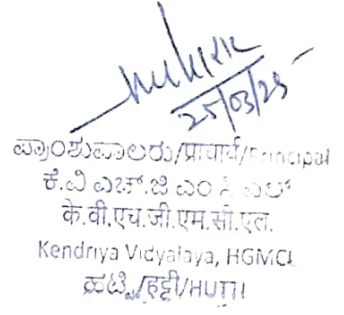 25/03/25
ಪ್ರಾಂಶುಪಾಲರು/प्राचार्य/Principal
ಕೆ.ವಿ ಎಚ್.ಜಿ ಎಂ ಸಿ ಎಲ್
के.वी.एच.जी.एम.सी.एल.
Kendriya Vidyalaya, HGMCL
ಹಟ್ಟಿ/हट्टी/HUTTI